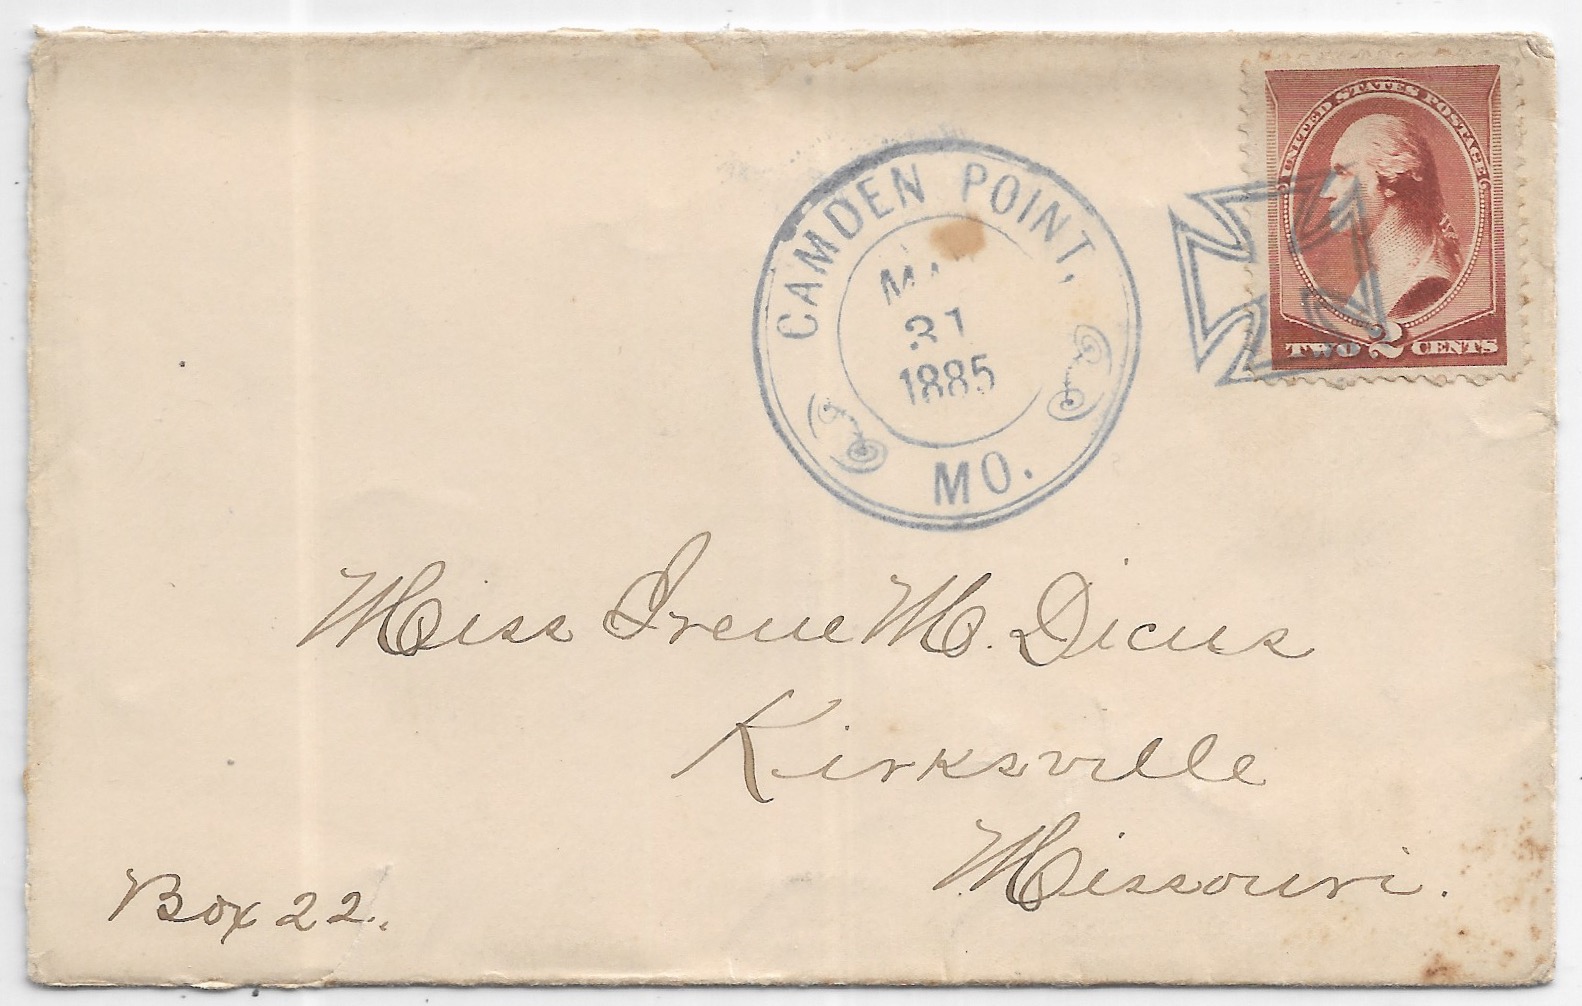 UNITED STATES POSTAGE
TWO 2 CENTS
CAMDEN POINT,
31
1885
MO.
Miss Irene M. Dicus
Kirksville
Missouri.
Box 22.